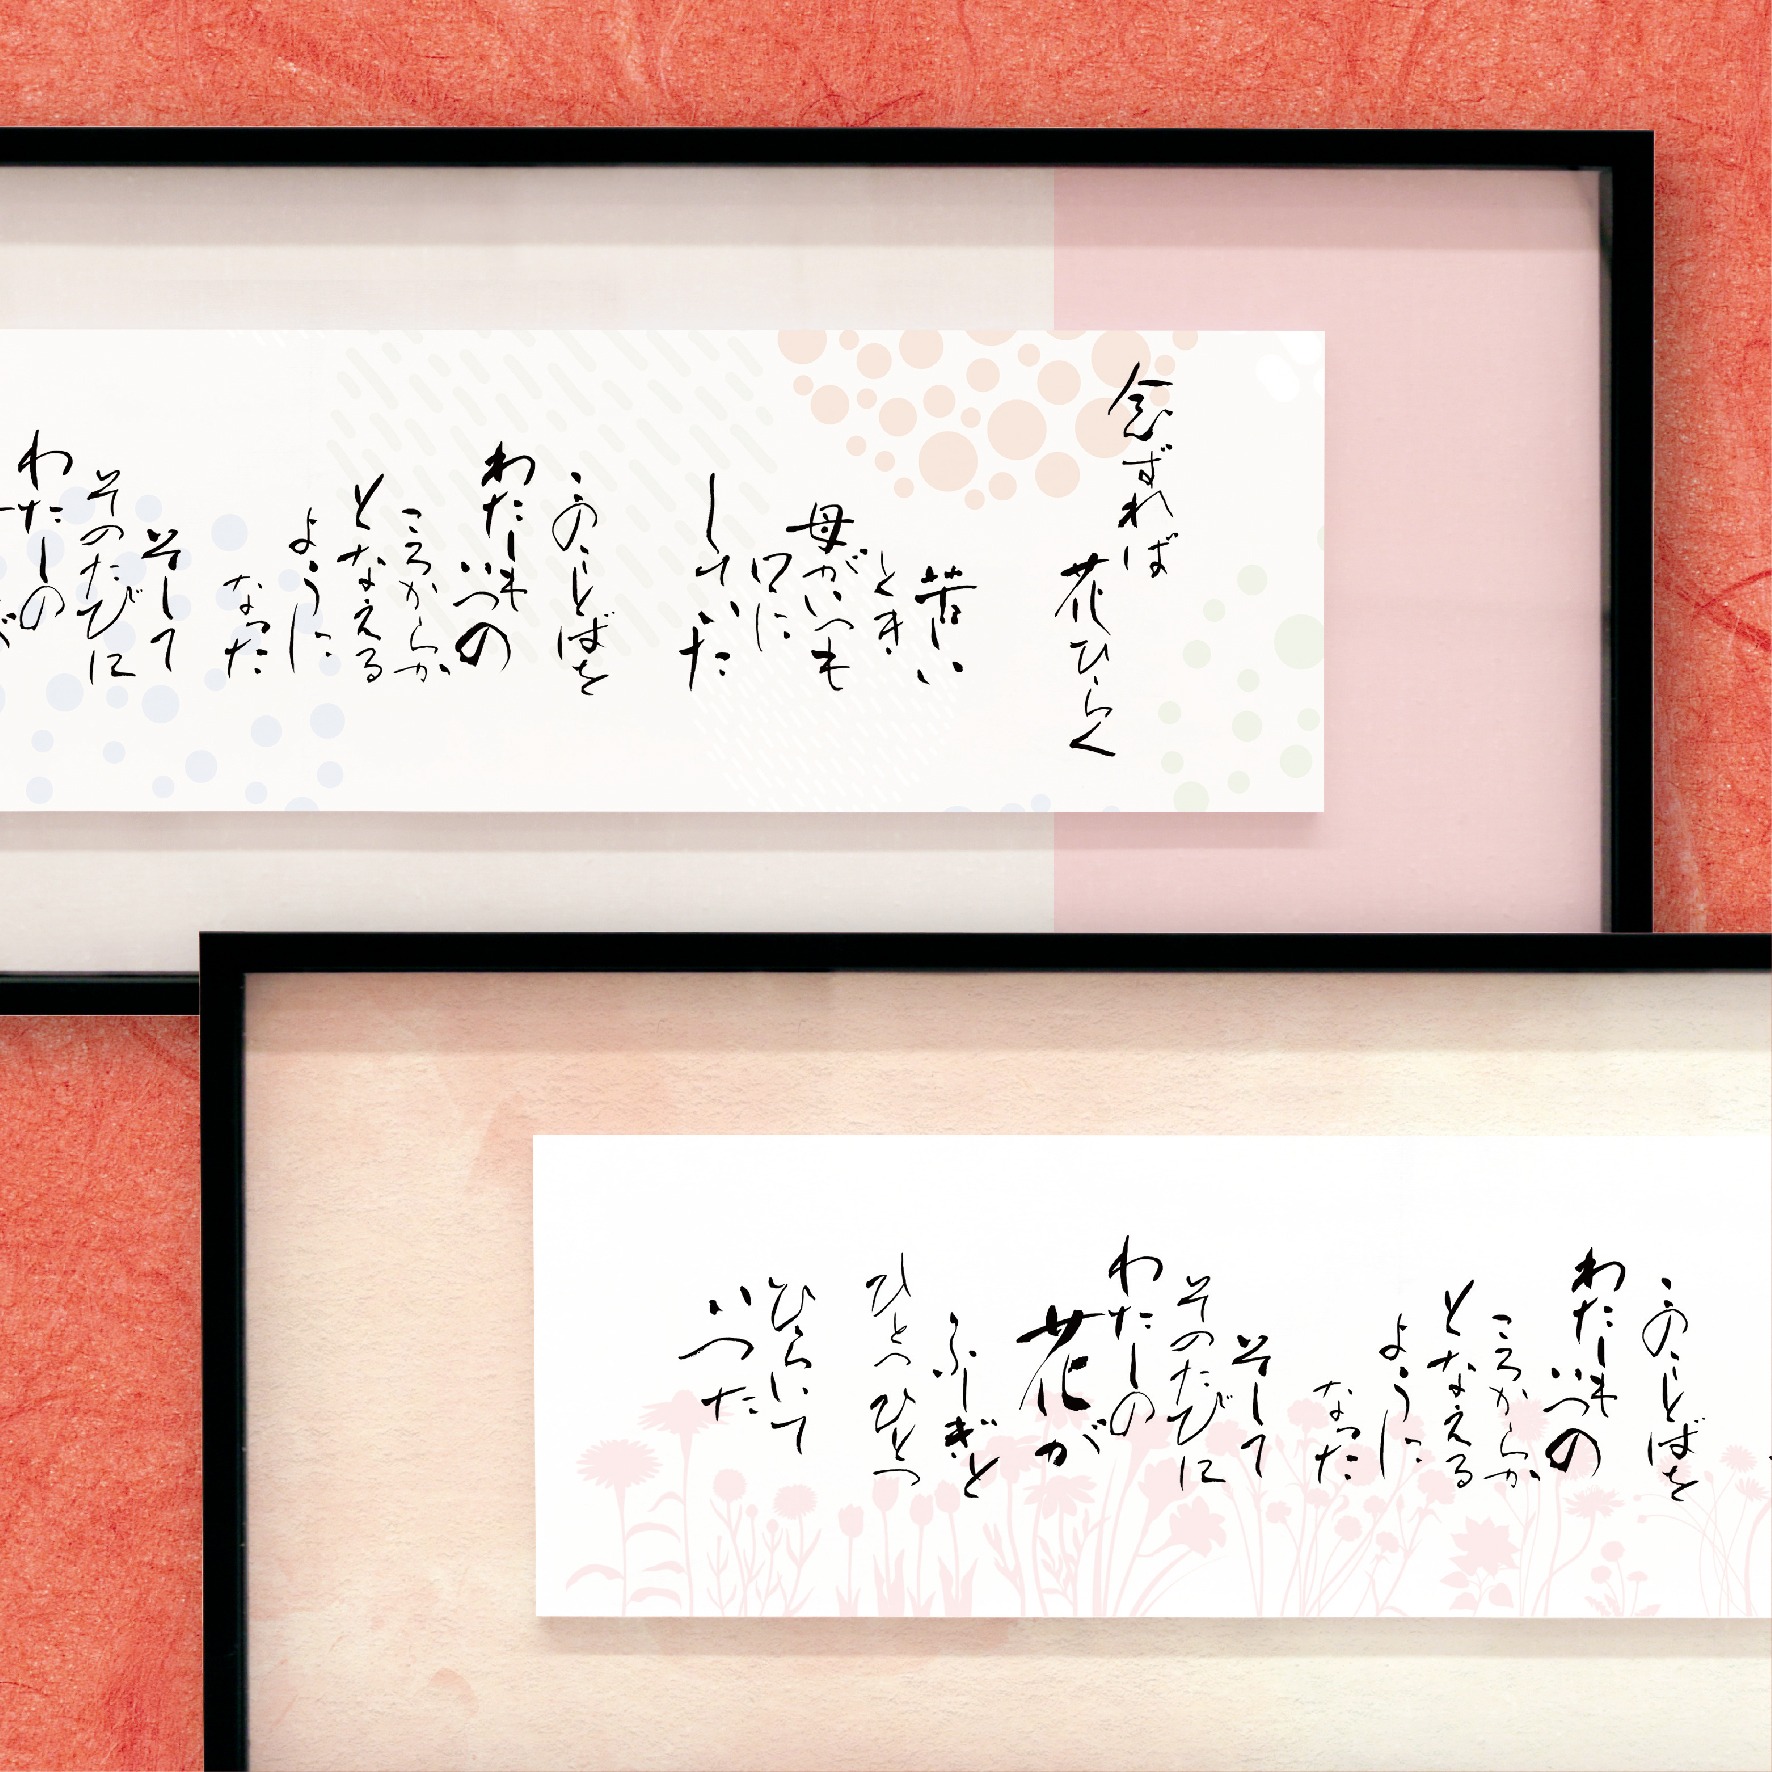 念ずれば
花ひらく
苦しい
とき
母がいつも
口に
していた
このことばを
わたしも
いつの
ころからか
となえる
ように
なった
そして
そのたびに
わたしの
このことばを
わたしも
いつの
ころからか
となえる
ように
なった
そして
そのたびに
わたしの
花が
ふしぎと
ひとつひとつ
ひらいて
いった